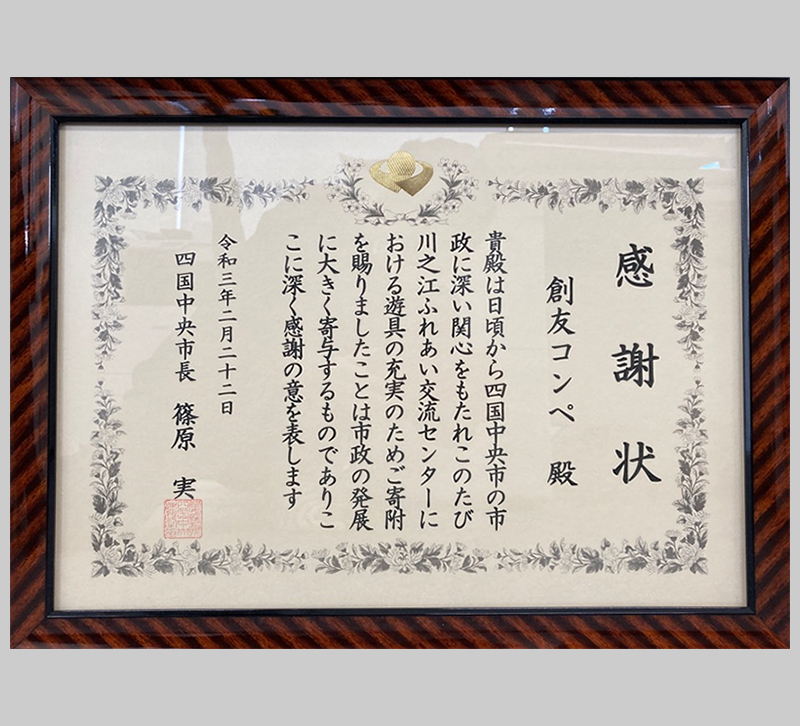 感謝状
創友コンペ 殿
貴殿は日頃から四国中央市の市
政に深い関心をもたれこのたび
川之江ふれあい交流センターに
おける遊具の充実のためご寄附
を賜りましたことは市政の発展
に大きく寄与するものでありこ
こに深く感謝の意を表します
令和三年二月二十二日
四国中央市長 篠原 実